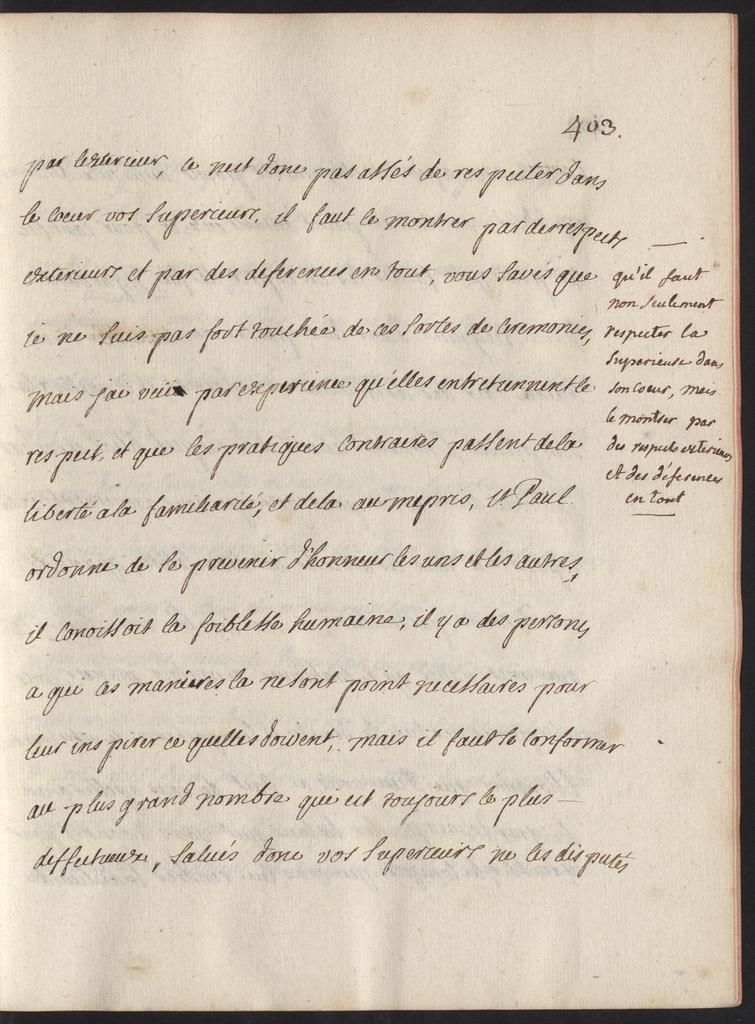 403.
par lexterieur, ce nest donc pas assés de respecter dans
le coeur vos superieurs, il faut le montrer par des respects
exterieurs et par des deferences en tout, vous savés que
ie ne suis pas fort touchée de ces sortes de ceremonies,
mais jai veu par experience qu'elles entretiennent le
respect, et que les pratiques contraires passent de la
liberté a la familiarité, et dela au mepris, St. Paul
ordonne de se prevenir d'honneur les uns et les autres,
il conoissoit la foiblesse humaine, il y a des persones
a qui ces manieres la ne sont point necessaires pour
leur inspirer ce quelles doivent, mais il faut se conformer
au plus grand nombre qui est toujours le plus
deffectueux, salués donc vos superieurs ne les disputés
qu'il faut
non seulement
respecter la
superieure dans
son coeur, mais
le montrer par
des respects exterieurs
et des déferences
en tout